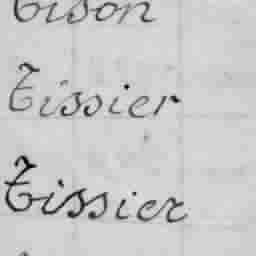 Tison
Tissier
Tissier